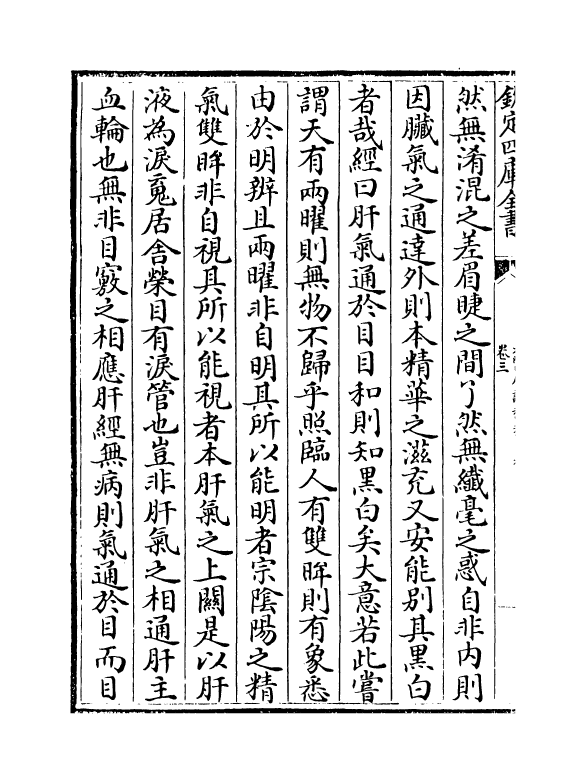 欽定四庫全書
卷三
然無淆混之差眉睫之間了然無纖毫之惑自非内則
因臟氣之通達外則本精華之滋充又安能别其黒白
者哉經曰肝氣通於目目和則知黒白矣大意若此嘗
謂天有兩曜則無物不歸乎照臨人有雙眸則有象悉
由於明辨且兩曜非自明其所以能明者宗隂陽之精
氣雙眸非自視其所以能視者本肝氣之上關是以肝
液為淚䰟居舍榮目有淚管也豈非肝氣之相通肝主
血輪也無非目竅之相應肝經無病則氣通於目而目